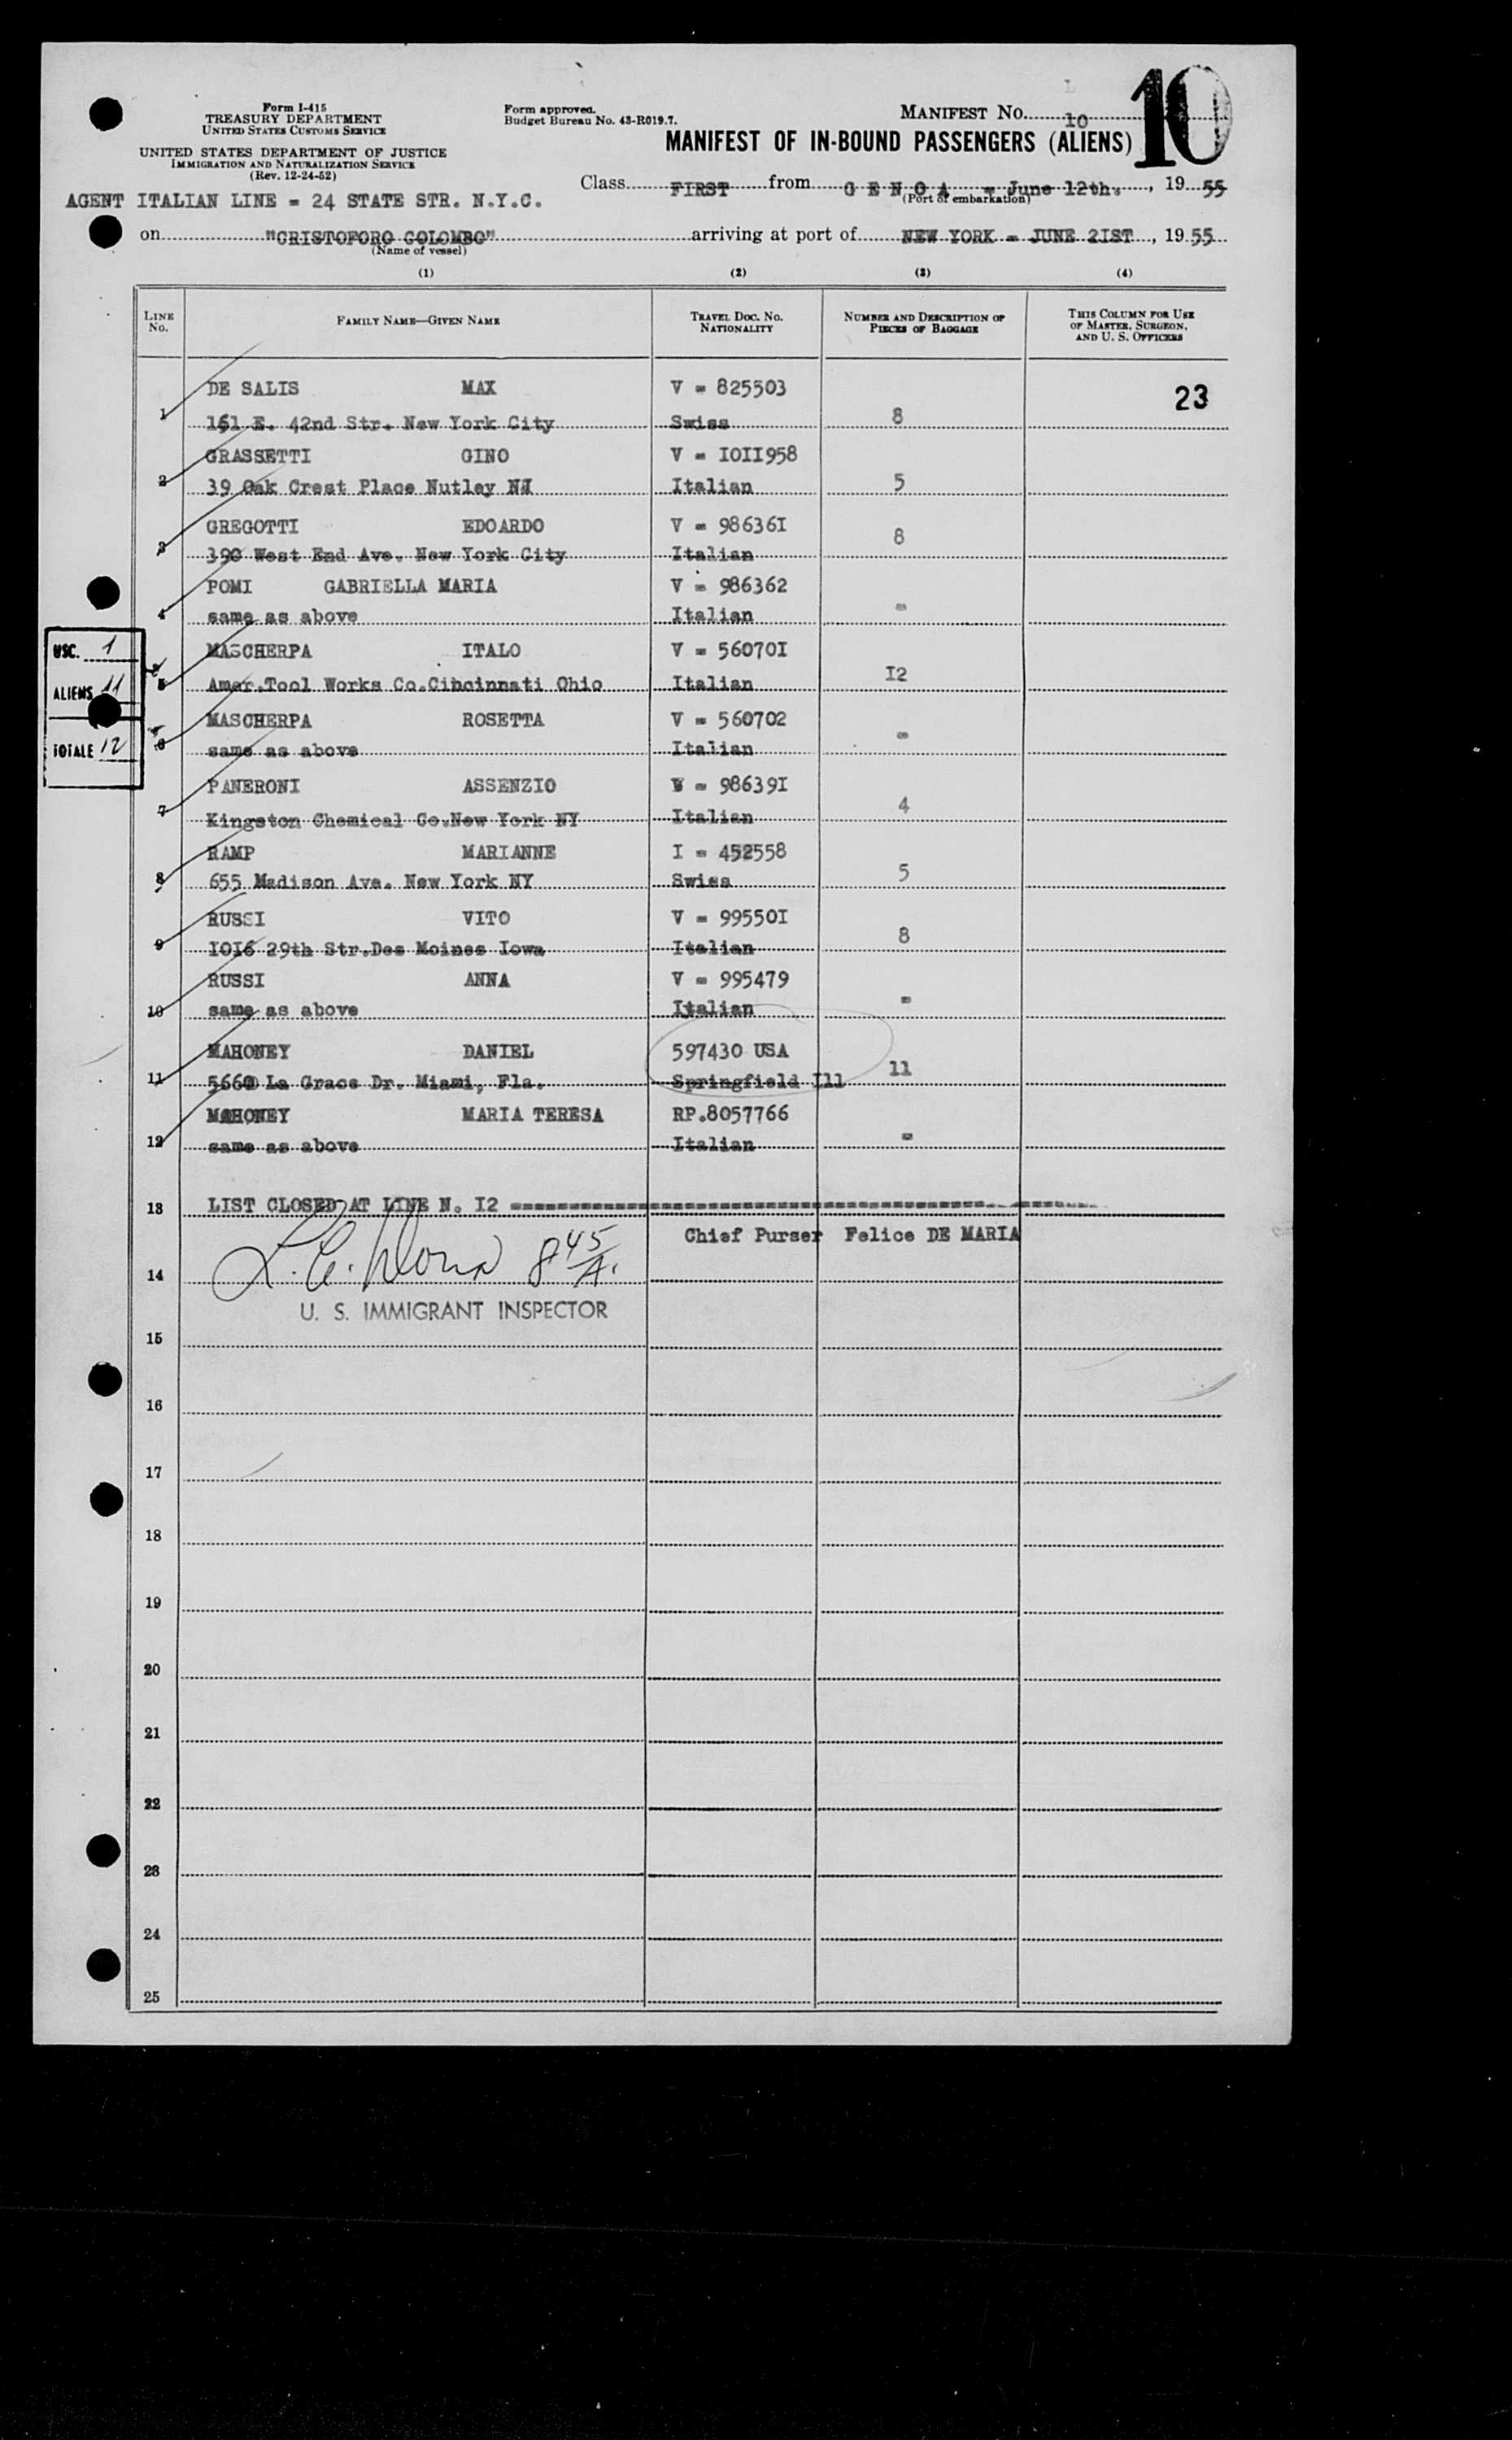 Form I-415
TREASURY DEPARTMENT
UNITED STATES CUSTOMS SERVICE
UNITED STATES DEPARTMENT OF JUSTICE
IMMIGRATION AND NATURALIZATION SERVICE
(Rev. 12-24-52)
Form approved.
Budget Bureau No. 43-R019.7.
MANIFEST No. 10
10
MANIFEST OF IN-BOUND PASSENGERS (ALIENS)
Class FIRST from G E N O A = June 12th. , 19 55
(Port of embarkation)
AGENT ITALIAN LINE = 24 STATE STR. N.Y.C.
on "CRISTOFORO COLOMBO" arriving at port of NEW YORK = JUNE 2IST , 19 55
(Name of vessel)
(1) (2) (3) (4)
LINE No. FAMILY NAME—GIVEN NAME TRAVEL DOC. NO. NATIONALITY NUMBER AND DESCRIPTION OF PIECES OF BAGGAGE THIS COLUMN FOR USE OF MASTER, SURGEON, AND U. S. OFFICERS
DE SALIS MAX V = 825503 23
1 E. 42nd Str. New York City Swiss 8
GRASSETTI GINO V = IOII958
2 39 Oak Crest Place Nutley NJ Italian 5
GREGOTTI EDOARDO V = 98636I
3 390 West End Ave. New York City Italian 8
POMI GABRIELLA MARIA V = 986362
4 same as above Italian =
USC. 1
ALIENS 11
TOTALE 12
MASCHERPA ITALO V = 56070I
5 Amer.Tool Works Co.Cincinnati Ohio Italian I2
MASCHERPA ROSETTA V = 560702
6 same as above Italian =
PANERONI ASSENZIO V = 98639I
7 Kingston Chemical Co.New York NY Italian 4
RAMP MARIANNE I = 452558
8 655 Madison Ave. New York NY Swiss 5
RUSSI VITO V = 99550I
9 IOI6 29th Str.Des Moines Iowa Italian 8
RUSSI ANNA V = 995479
10 same as above Italian =
MAHONEY DANIEL 597430 USA
11 5660 La Grace Dr. Miami, Fla. Springfield Ill 11
MAHONEY MARIA TERESA RP.8057766
12 same as above Italian =
13 LIST CLOSED AT LINE N. I2
Chief Purser Felice DE MARIA
14 8 45/A.
U. S. IMMIGRANT INSPECTOR
15
16
17
18
19
20
21
22
23
24
25